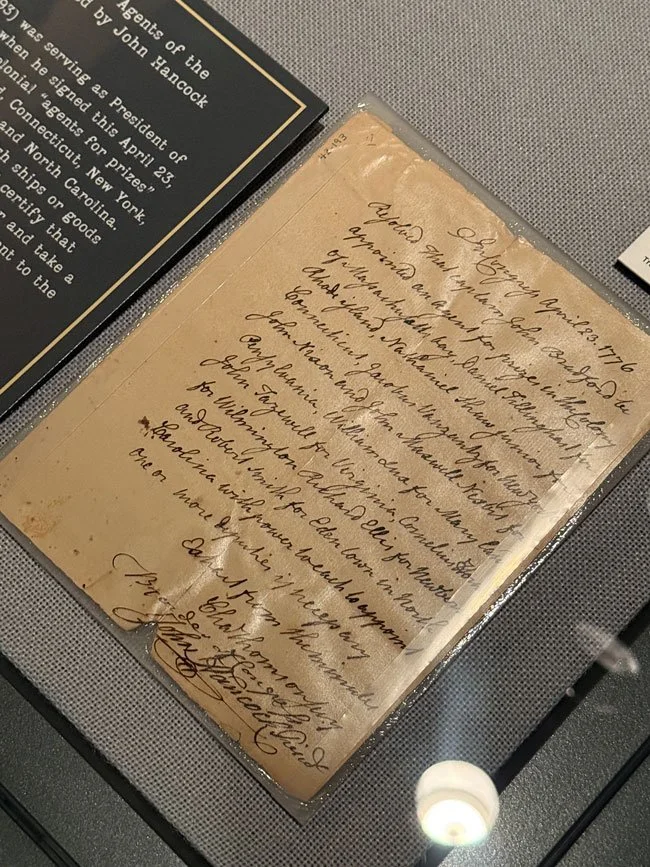 Agents of the
d by John Hancock
93) was serving as President of
when he signed this April 23,
olonial "agents for prizes"
d, Connecticut, New York,
and North Carolina.
th ships or goods
certify that
r and take a
ent to the
In Congress April 23. 1776
Resolved That captain John Bradford be
appointed an agent for prizes in the colony
of Massachusetts bay, Daniel Tillinghast for
Rhode island, Nathaniel Shaw junior for
Connecticut, Jacobus Vanzandt for New York
John Nixon and John Maxwell Nesbit for
Pennsylvania, William Lux for Maryland
John Tazewell for Virginia, Cornelius
for Wilmington Richard Ellis for Newbern
and Robert Smith for Edentown in North
Carolina with power to each to appoint
one or more deputies if necessary
Extract from the minutes
Cha Thomson secy
By order of Congress
John Hancock Presidt